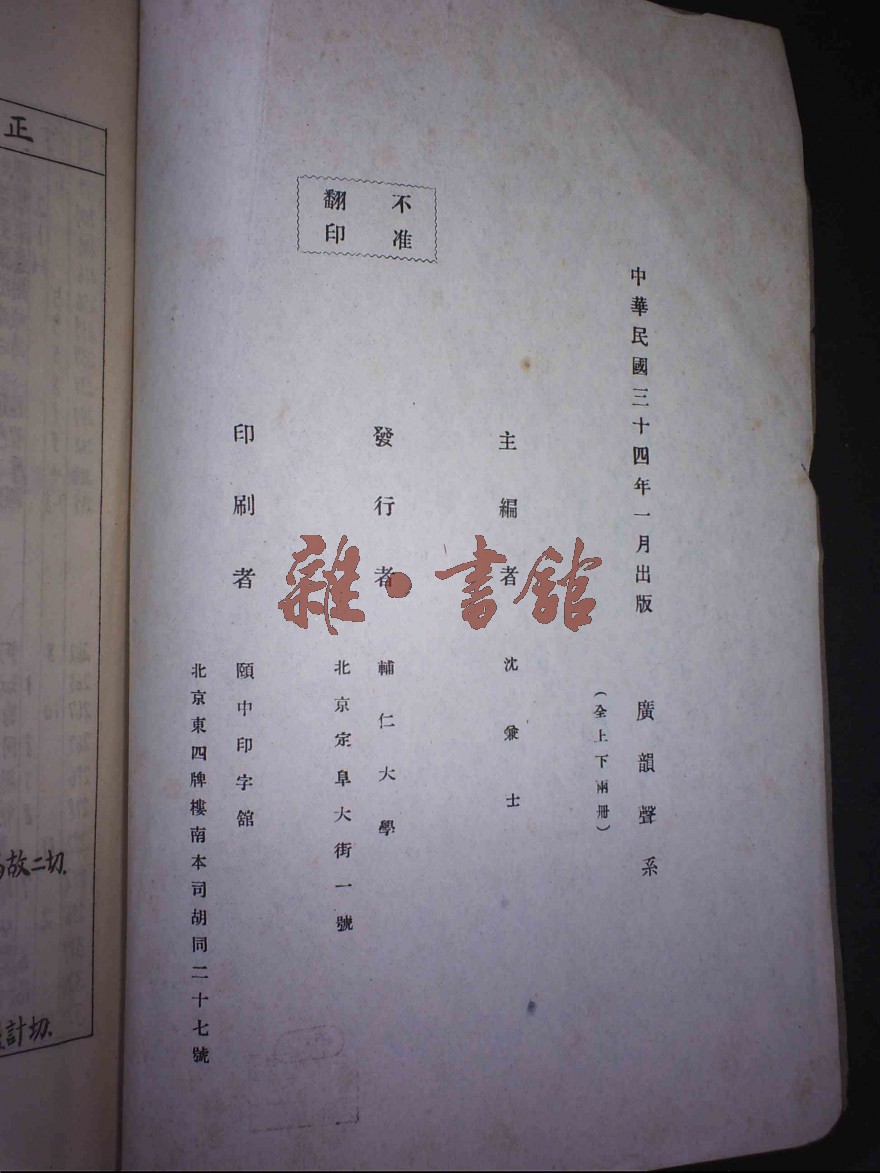 中華民國三十四年一月出版
廣韻聲系
(全上下兩冊)
主編者
沈兼士
發行者
輔仁大學
北京定阜大街一號
印刷者
頤中印字館
北京東四牌樓南本司胡同二十七號
不准
翻印
雜·書館
正
故二切
計切